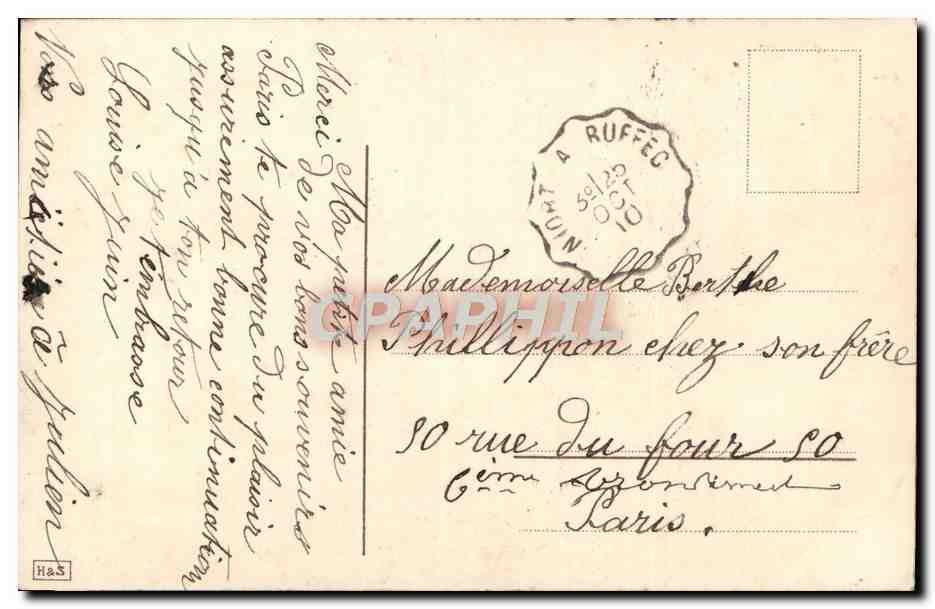 Ma petite amie
Merci de vos bons souvenirs
Paris te procure du plaisir
assurément bonne continuation
jusqu'à ton retour
je t'embrasse
Louise Juin
Vos amitiés à Julien
NIORT A RUFFEC
12
OCT
10
Mademoiselle Berthe
Phillippon chez son frère
50 rue du four 50
6ème
Paris.
CPAPHIL
H&S